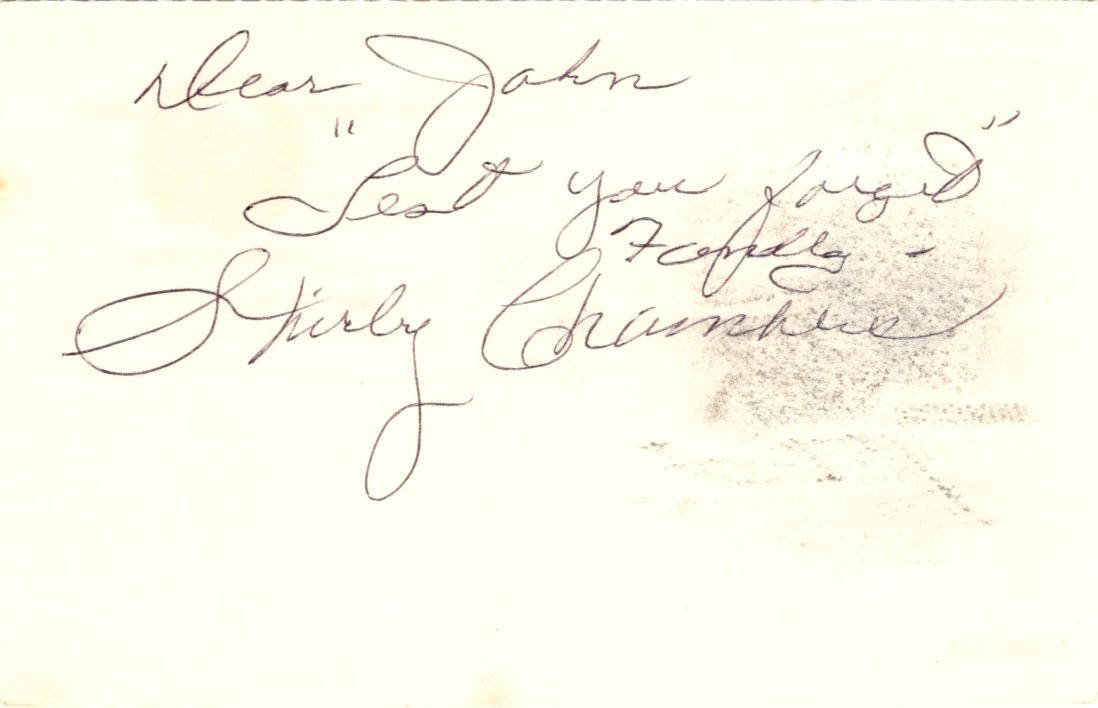 Dear John
"Lest you forget"
Fondly -
Shirley Chambers